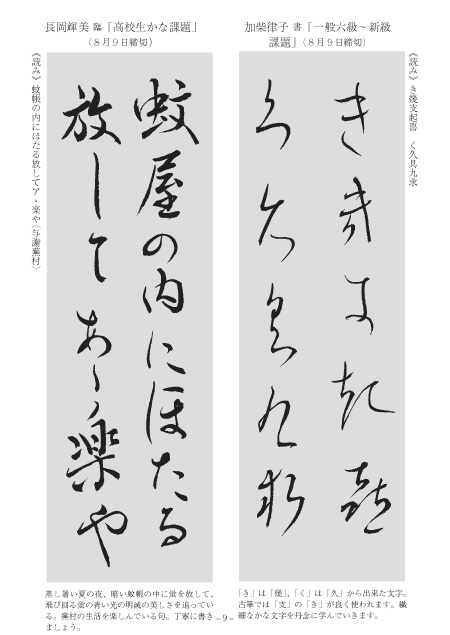 加柴律子 書「一般六級～新級
課題」(8月9日締切)
《読み》き幾支起喜 く久具九求
き幾支起喜
く久具九求
「き」は「幾」、「く」は「久」から出来た文字。
古筆では「支」の「き」が良く使われます。繊
細なかな文字を丹念に学んでいきます。
長岡輝美 臨「高校生かな課題」
(8月9日締切)
《読み》蚊帳の内にほたる放してアヽ楽や(与謝蕪村)
蚊屋の内にほたる
放してあゝ楽や
蒸し暑い夏の夜、暗い蚊帳の中に蛍を放して、
飛び回る蛍の青い光の明滅の美しさを追ってい
る。蕪村の生活を楽しんでいる句。丁寧に書き
ましょう。
- 9 -